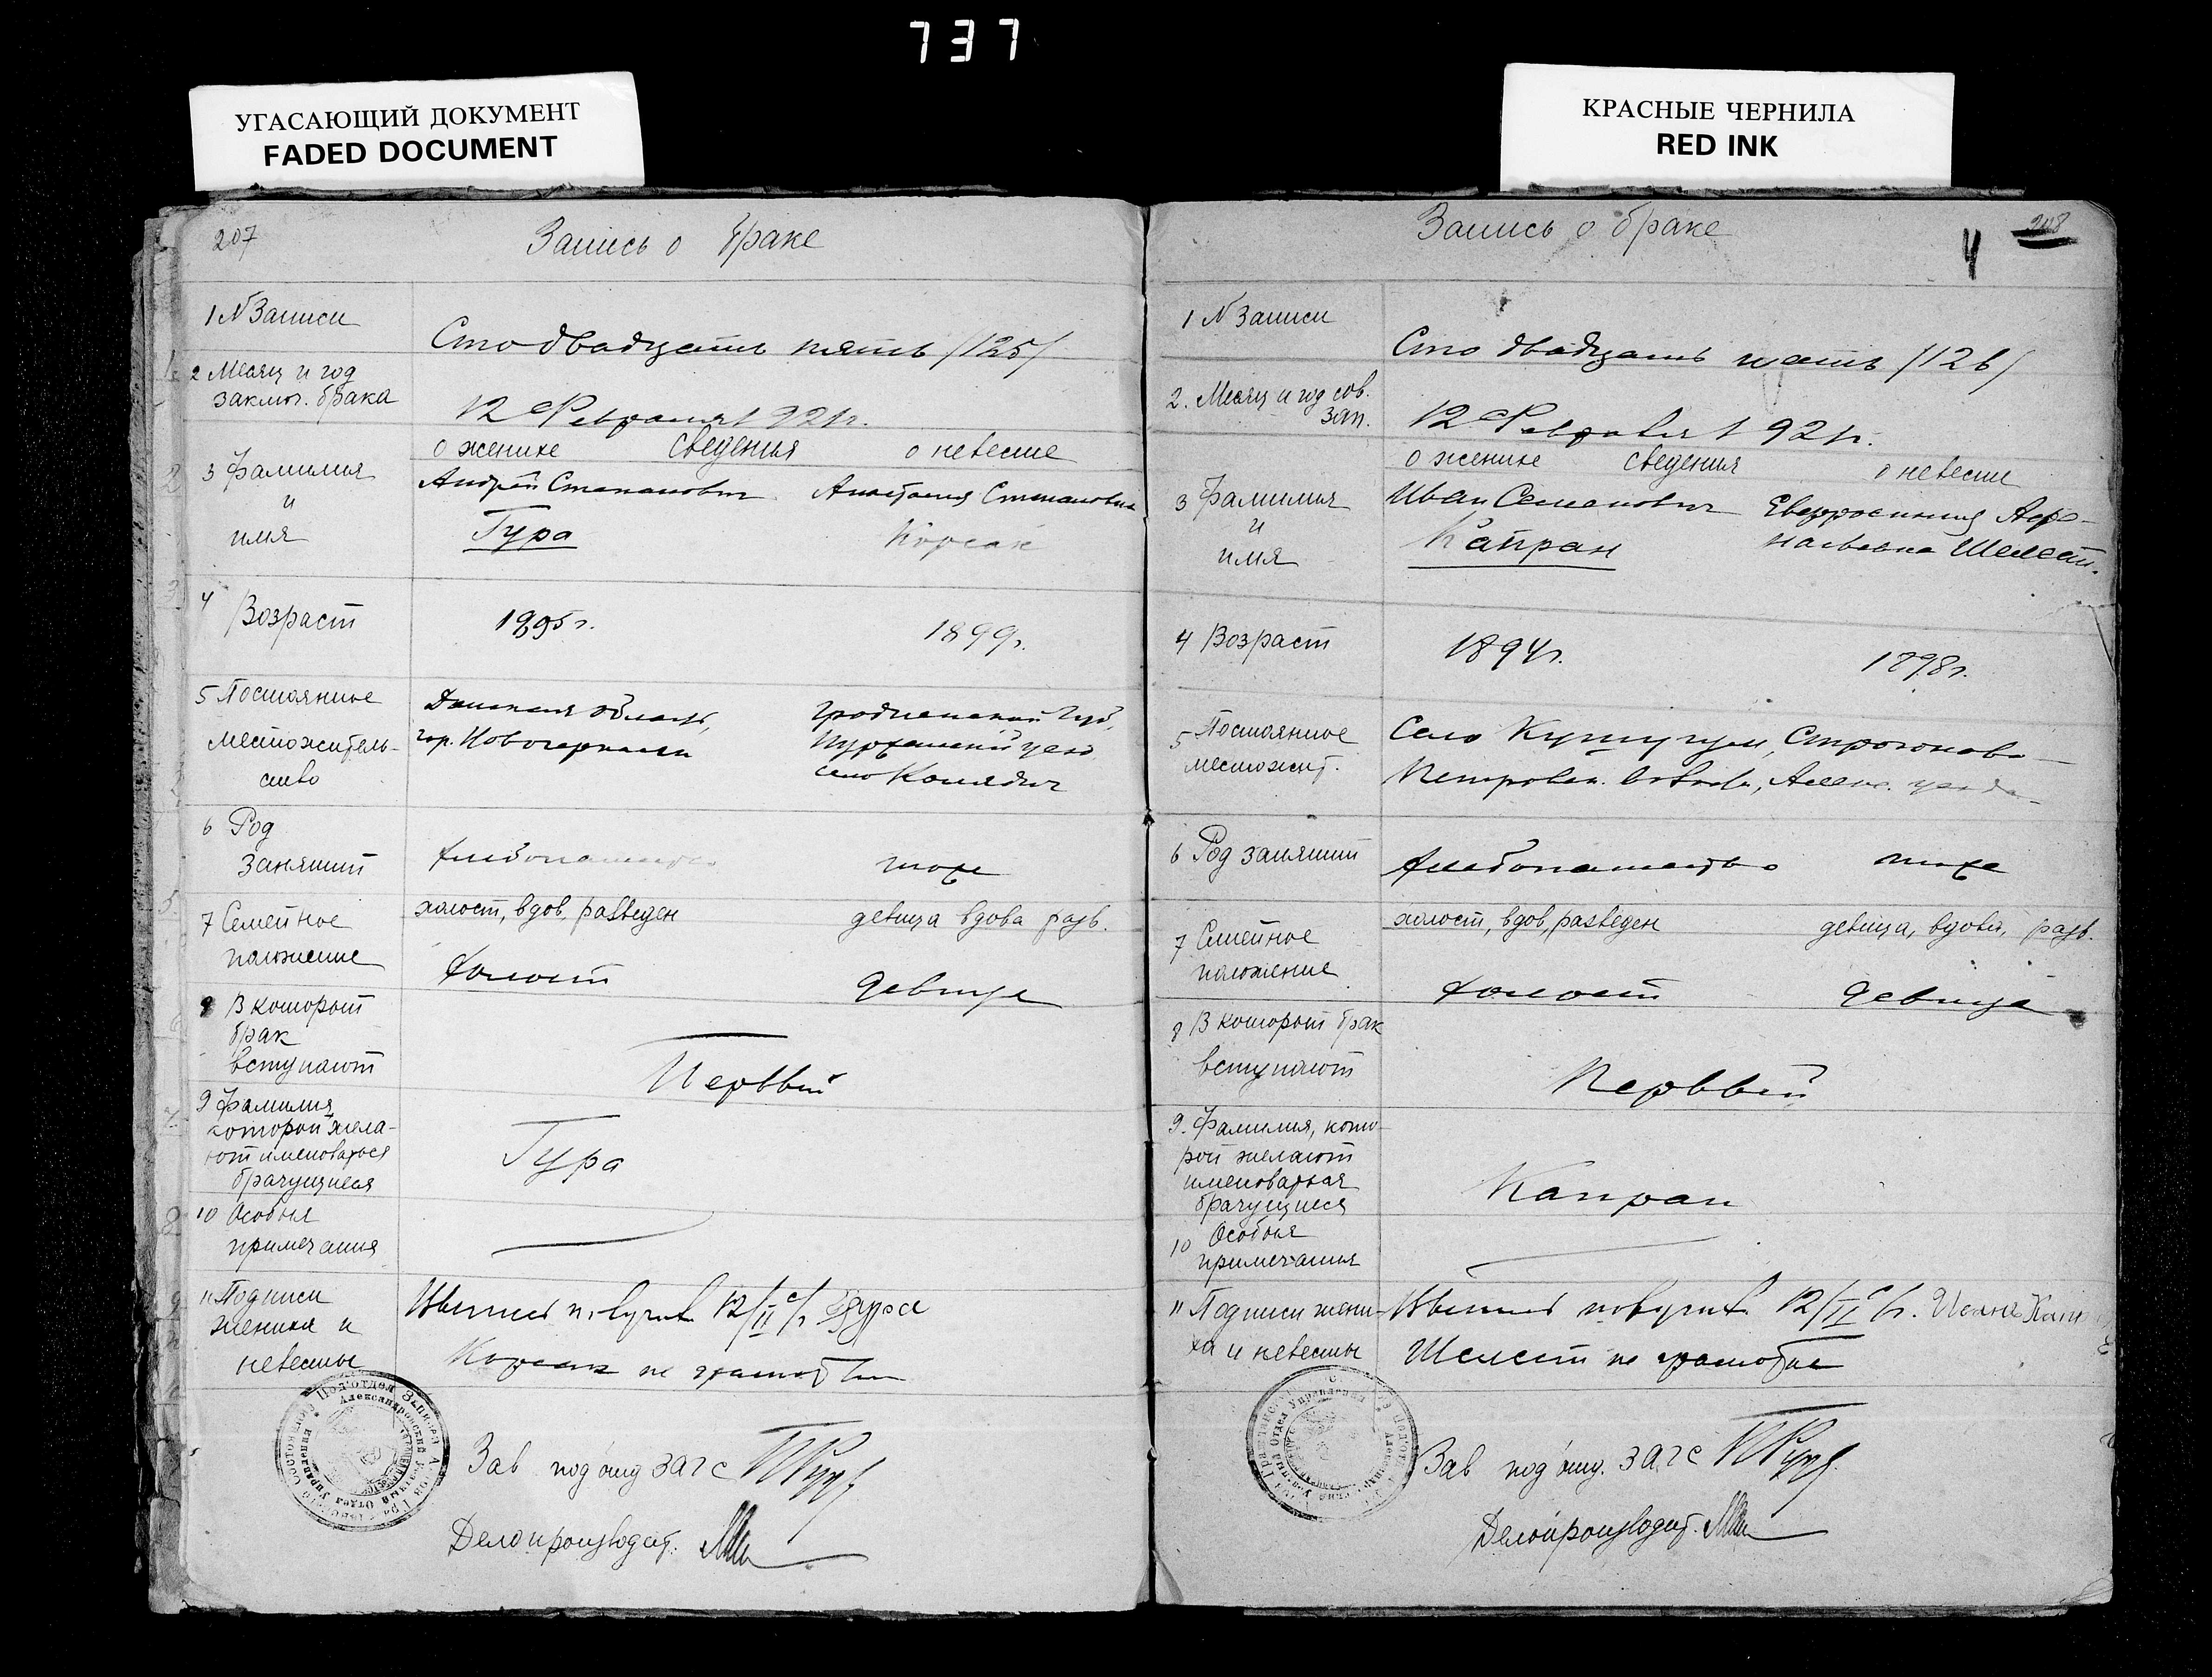 737
УГАСАЮЩИЙ ДОКУМЕНТ
FADED DOCUMENT
КРАСНЫЕ ЧЕРНИЛА
RED INK
207
Запись о браке
1 N Записи
Сто двадцать пять /125/
2 Месяц и год
заключ. брака
12 Февраля 1921г.
о женихе сведения о невесте
3 Фамилия
и
имя
Андрей Степанович Анастасия Степановна
Гура Корсак
4 Возраст
1895г. 1899г.
5 Постоянное
местожитель-
ство
Донская область, Гродненской Губ.
гор. Новочеркасск уезд
село
6 Род
занятий
Хлебопашество тоже
7 Семейное
положение
холост, вдов, разведен девица вдова разв.
Холост Девица
8 В который
брак
вступают
Первый
9 Фамилия
которой жела-
ют именоваться
брачущиеся
Гура
10 Особыя
примечания
11 Подписи
жениха и
невесты
12/II с/г Гура
Корсак не грамотна
Зав под'отд ЗАГС
Делопроизводит.
208
4
Запись о браке
1 N Записи
Сто двадцать шесть /126/
2. Месяц и год сов.
зап.
12 Февраля 1921г.
о женихе сведения о невесте
3 Фамилия
и
имя
Иван Семенович Евфросиния Афа-
Капран насьевна Шелест.
4 Возраст
1894г. 1898г.
5 Постоянное
местожит.
Село Кушугум,
Петровск. Алекс. уезда
6 Род занятий
Хлебопашество тоже
7 Семейное
положение
холост, вдов, разведен девица, вдова, разв.
Холост Девица
8 В который брак
вступают
Первый
9. Фамилия, кото-
рой желают
именоваться
брачущиеся
Капран
10 Особыя
примечания
11 Подписи жени-
ха и невесты
12/II с/г.
Шелест не грамотна
Зав под'отд. ЗАГС
Делопроизводит.